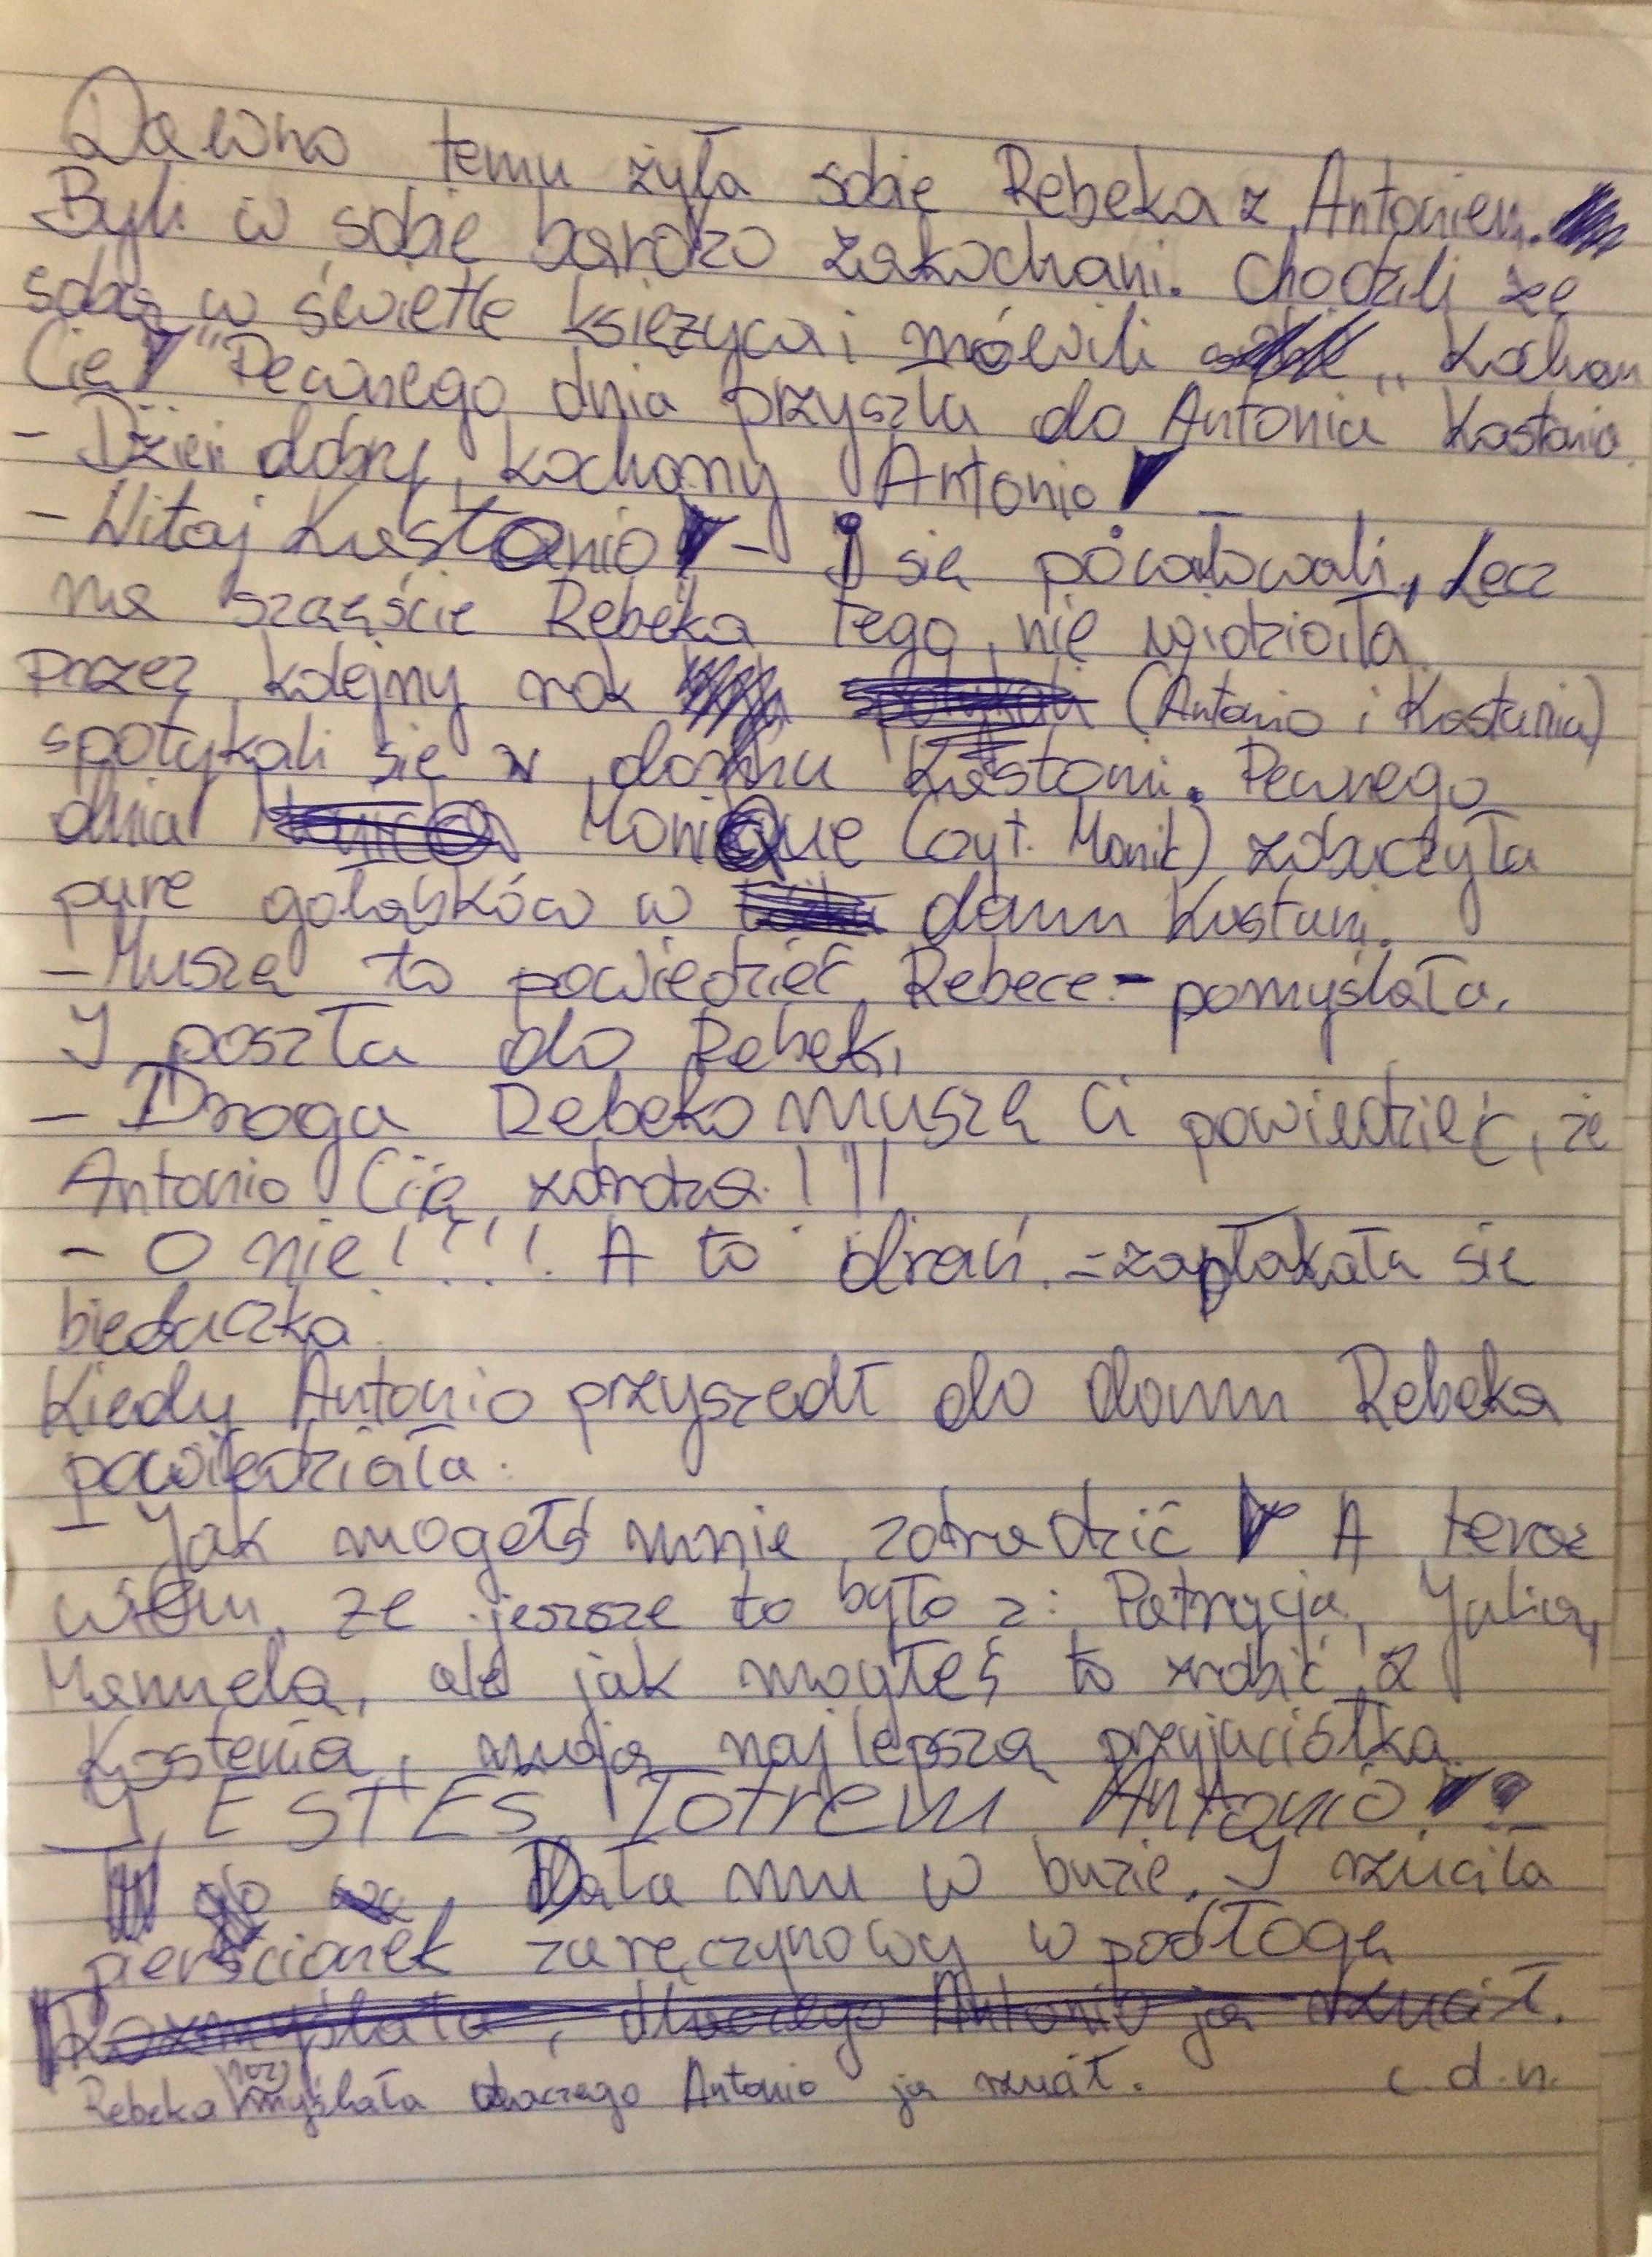 Dawno temu żyła sobie Rebeka z Antoniem.
Byli w sobie bardzo zakochani. Chodzili ze
sobą w świetle księżyca i mówili „Kocham
Cię!" Pewnego dnia przyszła do Antonia Kastania.
- Dzień dobry, kochany Antonio! -
- Witaj Kastanio! - I się pocałowali, Lecz
na szczęście Rebeka tego nie widziała.
Przez kolejny rok (Antonio i Kastania)
spotykali się w domku Kastani. Pewnego
dnia Monique (czyt. Monik) zobaczyła
parę gołąbków w domu Kastani.
- Muszę to powiedzieć Rebece - pomyślała.
I poszła do Rebeki
- Droga Rebeko muszę Ci powiedzieć, że
Antonio Cię zdradza!!!
- O nie!!!! A to drań. - zapłakała się
biedaczka.
Kiedy Antonio przyszedł do domu Rebeka
powiedziała:
- Jak mogełś mnie zdradzić! A teraz
wiem, że jeszsze to było z: Patrycją, Julią,
Manuelą, ale jak mogłeś to zrobić z
Kastanią, moją najlepszą przyjaciółką.
JESTEŚ łotrem Antonio!
Dała mu w buzie. I rzuciła
pierścionek zaręczynowy w podłogę
Rebeka rozmyślała dlaczego Antonio ją rzucił. c.d.n.